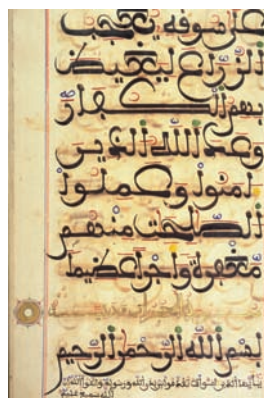 على سوقه يعجب
الزراع ليغيظ
بهم الكفار
وعد الله الذين
امنوا وعملوا
الصلحت منهم
مغفرة واجرا عظيما
بسم الله الرحمن الرحيم
يأيها الذين امنوا لا تقدموا بين يدي الله ورسوله واتقوا الله ان
الله سميع عليم